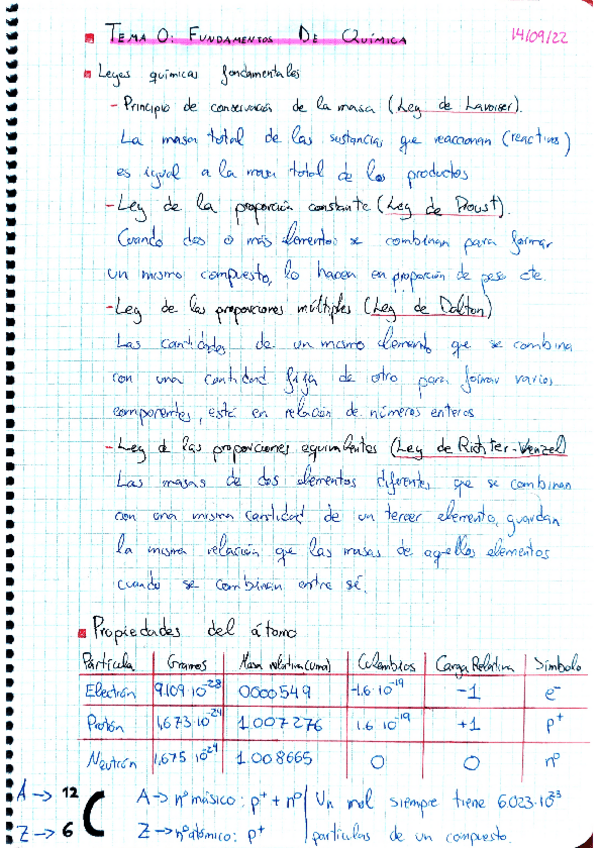 TEMA 0: FUNDAMENTOS DE QUÍMICA 14/09/22
Leyes químicas fundamentales
- Principio de conservación de la masa (Ley de Lavoiser).
La masa total de las sustancias que reaccionan (reactivos)
es igual a la masa total de los productos
- Ley de la proporción constante (Ley de Proust).
Cuando dos o más elementos se combinan para formar
un mismo compuesto, lo hacen en proporción de peso cte.
- Ley de las proporciones múltiples (Ley de Dalton)
Las cantidades de un mismo elemento que se combina
con una cantidad fija de otro para formar varios
componentes, está en relación de números enteros
- Ley de las proporciones equivalentes (Ley de Richter-Wenzel)
Las masas de dos elementos diferentes que se combinan
con una misma cantidad de un tercer elemento, guardan
la misma relación que las masas de aquellos elementos
cuando se combinan entre sí.
Propiedades del átomo
Partícula Gramos Masa relativa (uma) Culombios Carga Relativa Símbolo
Electrón 9.109·10⁻²⁸ 0.000549 -1.6·10⁻¹⁹ -1 e⁻
Protón 1,673·10⁻²⁴ 1.007276 1.6 10⁻¹⁹ +1 p⁺
Neutrón 1,675 10⁻²⁴ 1.008665 0 0 nº
A → 12 C A → nº másico: p⁺ + nº Un mol siempre tiene 6.023·10²³
Z → 6 Z → nº atómico: p⁺ partículas de un compuesto.